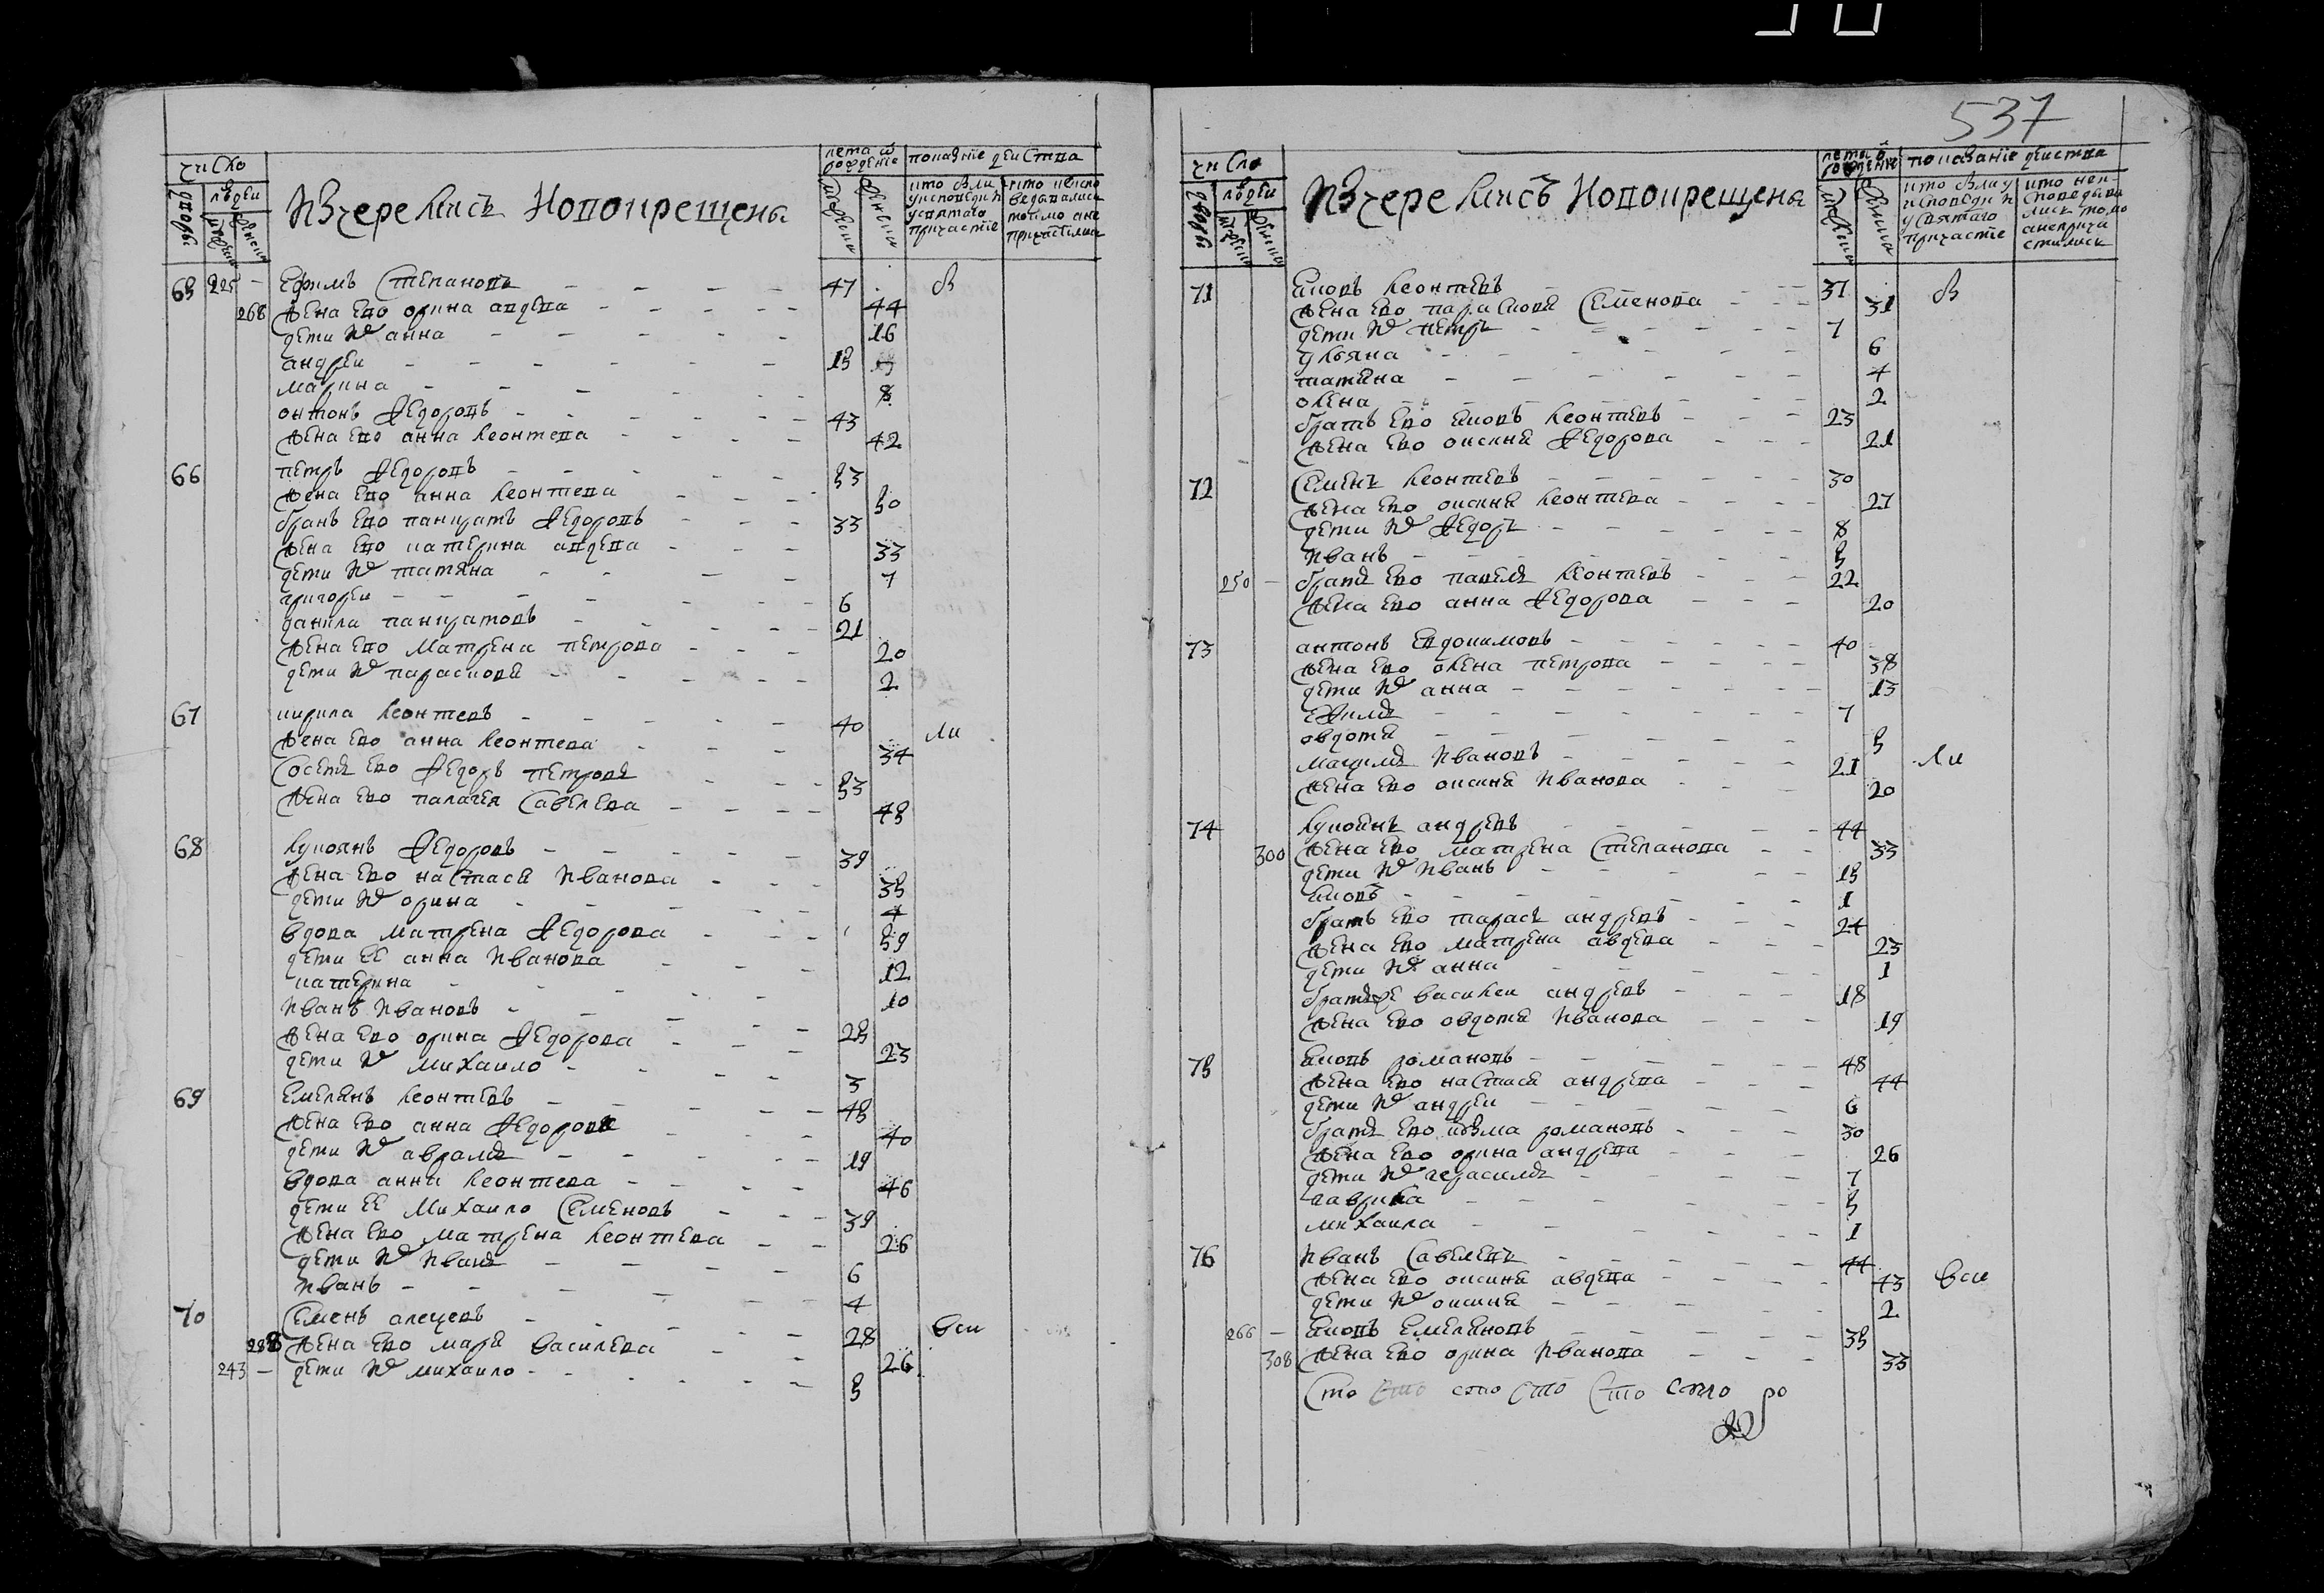 537
число
лета ѿ рождения
показание действа
дворы
людеи
мужеска
женска
Из черемис новокрещены
мужеска
женска
кто были у исповеди и у святаго причастие
кто исповедовались токмо а не причастились
65 225 — Ефимъ Степановъ 47 в
268 жена ево орина авдева 44
дети их анна 16
андреи 15
марина 8
онтонъ Федоровъ 43
жена ево анна леонтева 42
66 петръ Федоровъ 53
жена ево анна леонтева 50
братъ ево панкратъ Федоровъ 33
жена ево катерина авдева 33
дети их татяна 7
григореи 6
данила панкратовъ 21
жена ево матрена петрова 20
дети их парасковя 2
67 кирила леонтевъ 40 ли
жена ево анна леонтева 34
Соседъ ево Федоръ петровъ 53
жена ево палагея Савелева 45
68 лукоянъ Федоровъ 39
жена ево настася иванова 35
дети их орина 4
вдова матрена Федорова 59
дети ее анна иванова 12
катерина 10
иванъ ивановъ 25
жена ево орина Федорова 23
дети их михаило 3
69 Емелянъ леонтевъ 45
жена ево анна Федорова 40
дети их аврамъ 19
вдова анна леонтева 46
дети ее михаило Семеновъ 39
жена ево матрена леонтева 26
дети их иванъ 6
иванъ 4
70 Семенъ алецевъ 28 вси
288 жена ево маря василева 26
243 — дети их михаило 5
число
лета ѿ рождения
показание действа
дворы
людеи
мужеска
женска
Из черемисъ новокрещена
мужеска
женска
кто были у исповеди и у святаго причастие
кто не исповедывались токмо а не причастились
71 яковъ леонтевъ 37 в
жена ево парасковя Семенова 31
дети их петръ 7
ульяна 6
татяна 4
олена 2
братъ ево яковъ леонтевъ 23
жена ево оксиня Федорова 21
72 Семенъ леонтевъ 30
жена ево оксиня леонтева 27
дети их Федоръ 8
иванъ 5
250 — братъ ево павелъ леонтевъ 22
жена ево анна Федорова 20
73 антонъ Евдокимовъ 40
жена ево олена петрова 38
дети их анна 13
ефимъ 7
овдотя 5
максимъ ивановъ 21 ли
жена ево оксиня иванова 20
74 лукоянъ андревъ 44
300 жена ево матрена Степанова 33
дети их иванъ 15
яковъ 1
братъ ево тарасъ андревъ 24
жена ево матрена авдева 23
дети их анна 1
братъ же василеи андревъ 18
жена ево овдотя иванова 19
75 яковъ романовъ 48
жена ево настася андрева 44
дети их андреи 6
братъ ево кузма романовъ 30
жена ево орина андрева 26
дети их герасимъ 7
гаврила 5
михаила 1
76 иванъ Савелевъ 44 вси
жена ево оксиня авдева 43
дети их оксиня 2
266 — яковъ Емеляновъ 35
308 жена ево орина иванова 33
Сто Сто сто Сто Сто сто ро